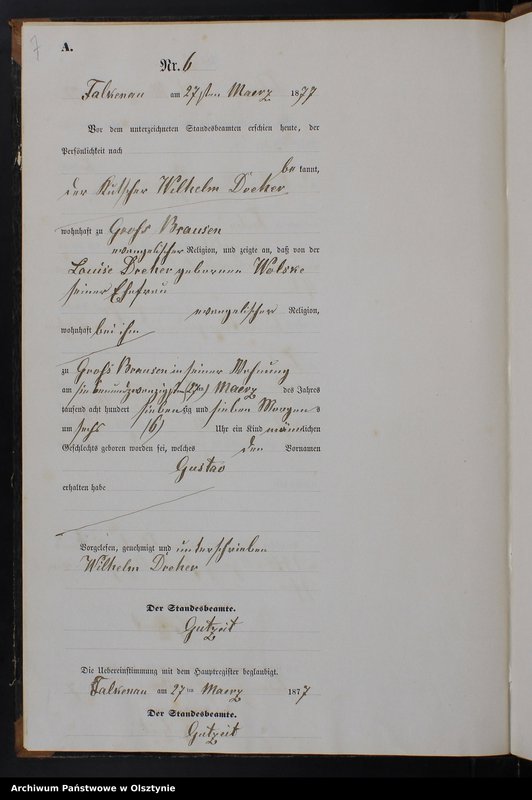 7
A.
Nr. 6
Falkenau am 27sten Maerz 1877
Vor dem unterzeichneten Standesbeamten erschien heute, der
Persönlichkeit nach
be kannt,
der Kutscher Wilhelm Dreher
wohnhaft zu Groß Brausen
evangelischer Religion, und zeigte an, daß von der
Louise Dreher geborenen Wolske
seiner Ehefrau
evangelischer Religion,
wohnhaft bei ihm
zu Groß Brausen in seiner Wohnung
am siebenundzwanzigsten (27ten) Maerz des Jahres
tausend acht hundert siebenzig und sieben Morgens
um sechs (6) Uhr ein Kind männlichen
Geschlechts geboren worden sei, welches den Vornamen
Gustav
erhalten habe
Vorgelesen, genehmigt und unterschrieben
Wilhelm Dreher
Der Standesbeamte.
Gutzeit
Die Uebereinstimmung mit dem Hauptregister beglaubigt.
Falkenau am 27ten Maerz 1877
Der Standesbeamte.
Gutzeit
Archiwum Państwowe w Olsztynie